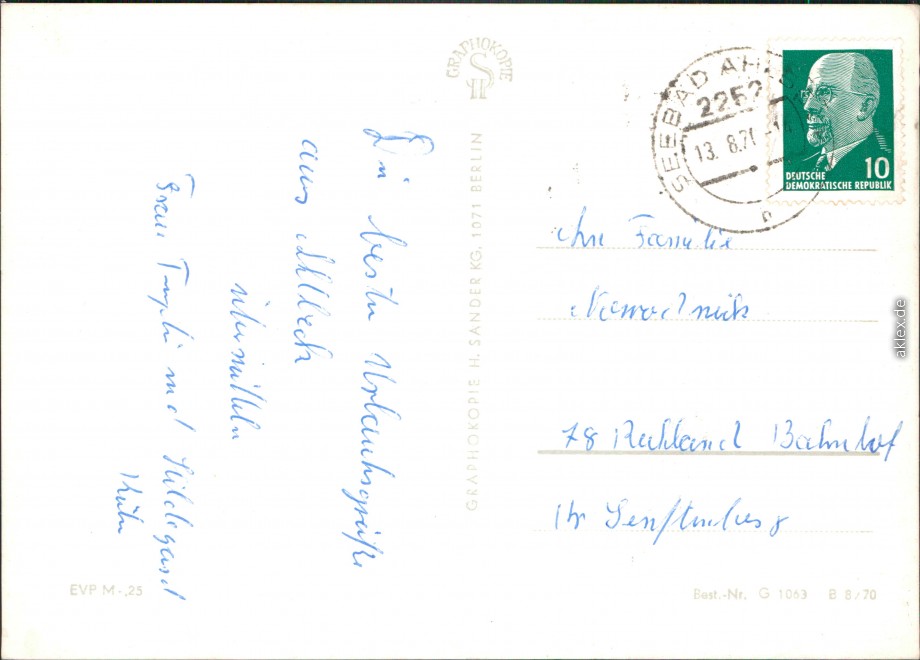 GRAPHOKOPIE
H S
SEEBAD AH
2252
13. 8.71-14
DEUTSCHE
DEMOKRATISCHE REPUBLIK
10
Die besten Urlaubsgrüße
aus Ahlbeck
übermitteln
Frau und Hildegard
GRAPHOKOPIE H. SANDER KG. 1071 BERLIN
An Familie
78 Ruhland Bahnhof
Kr Senftenberg
EVP M -,25
Best.-Nr. G 1063 B 8/70
aklex.de